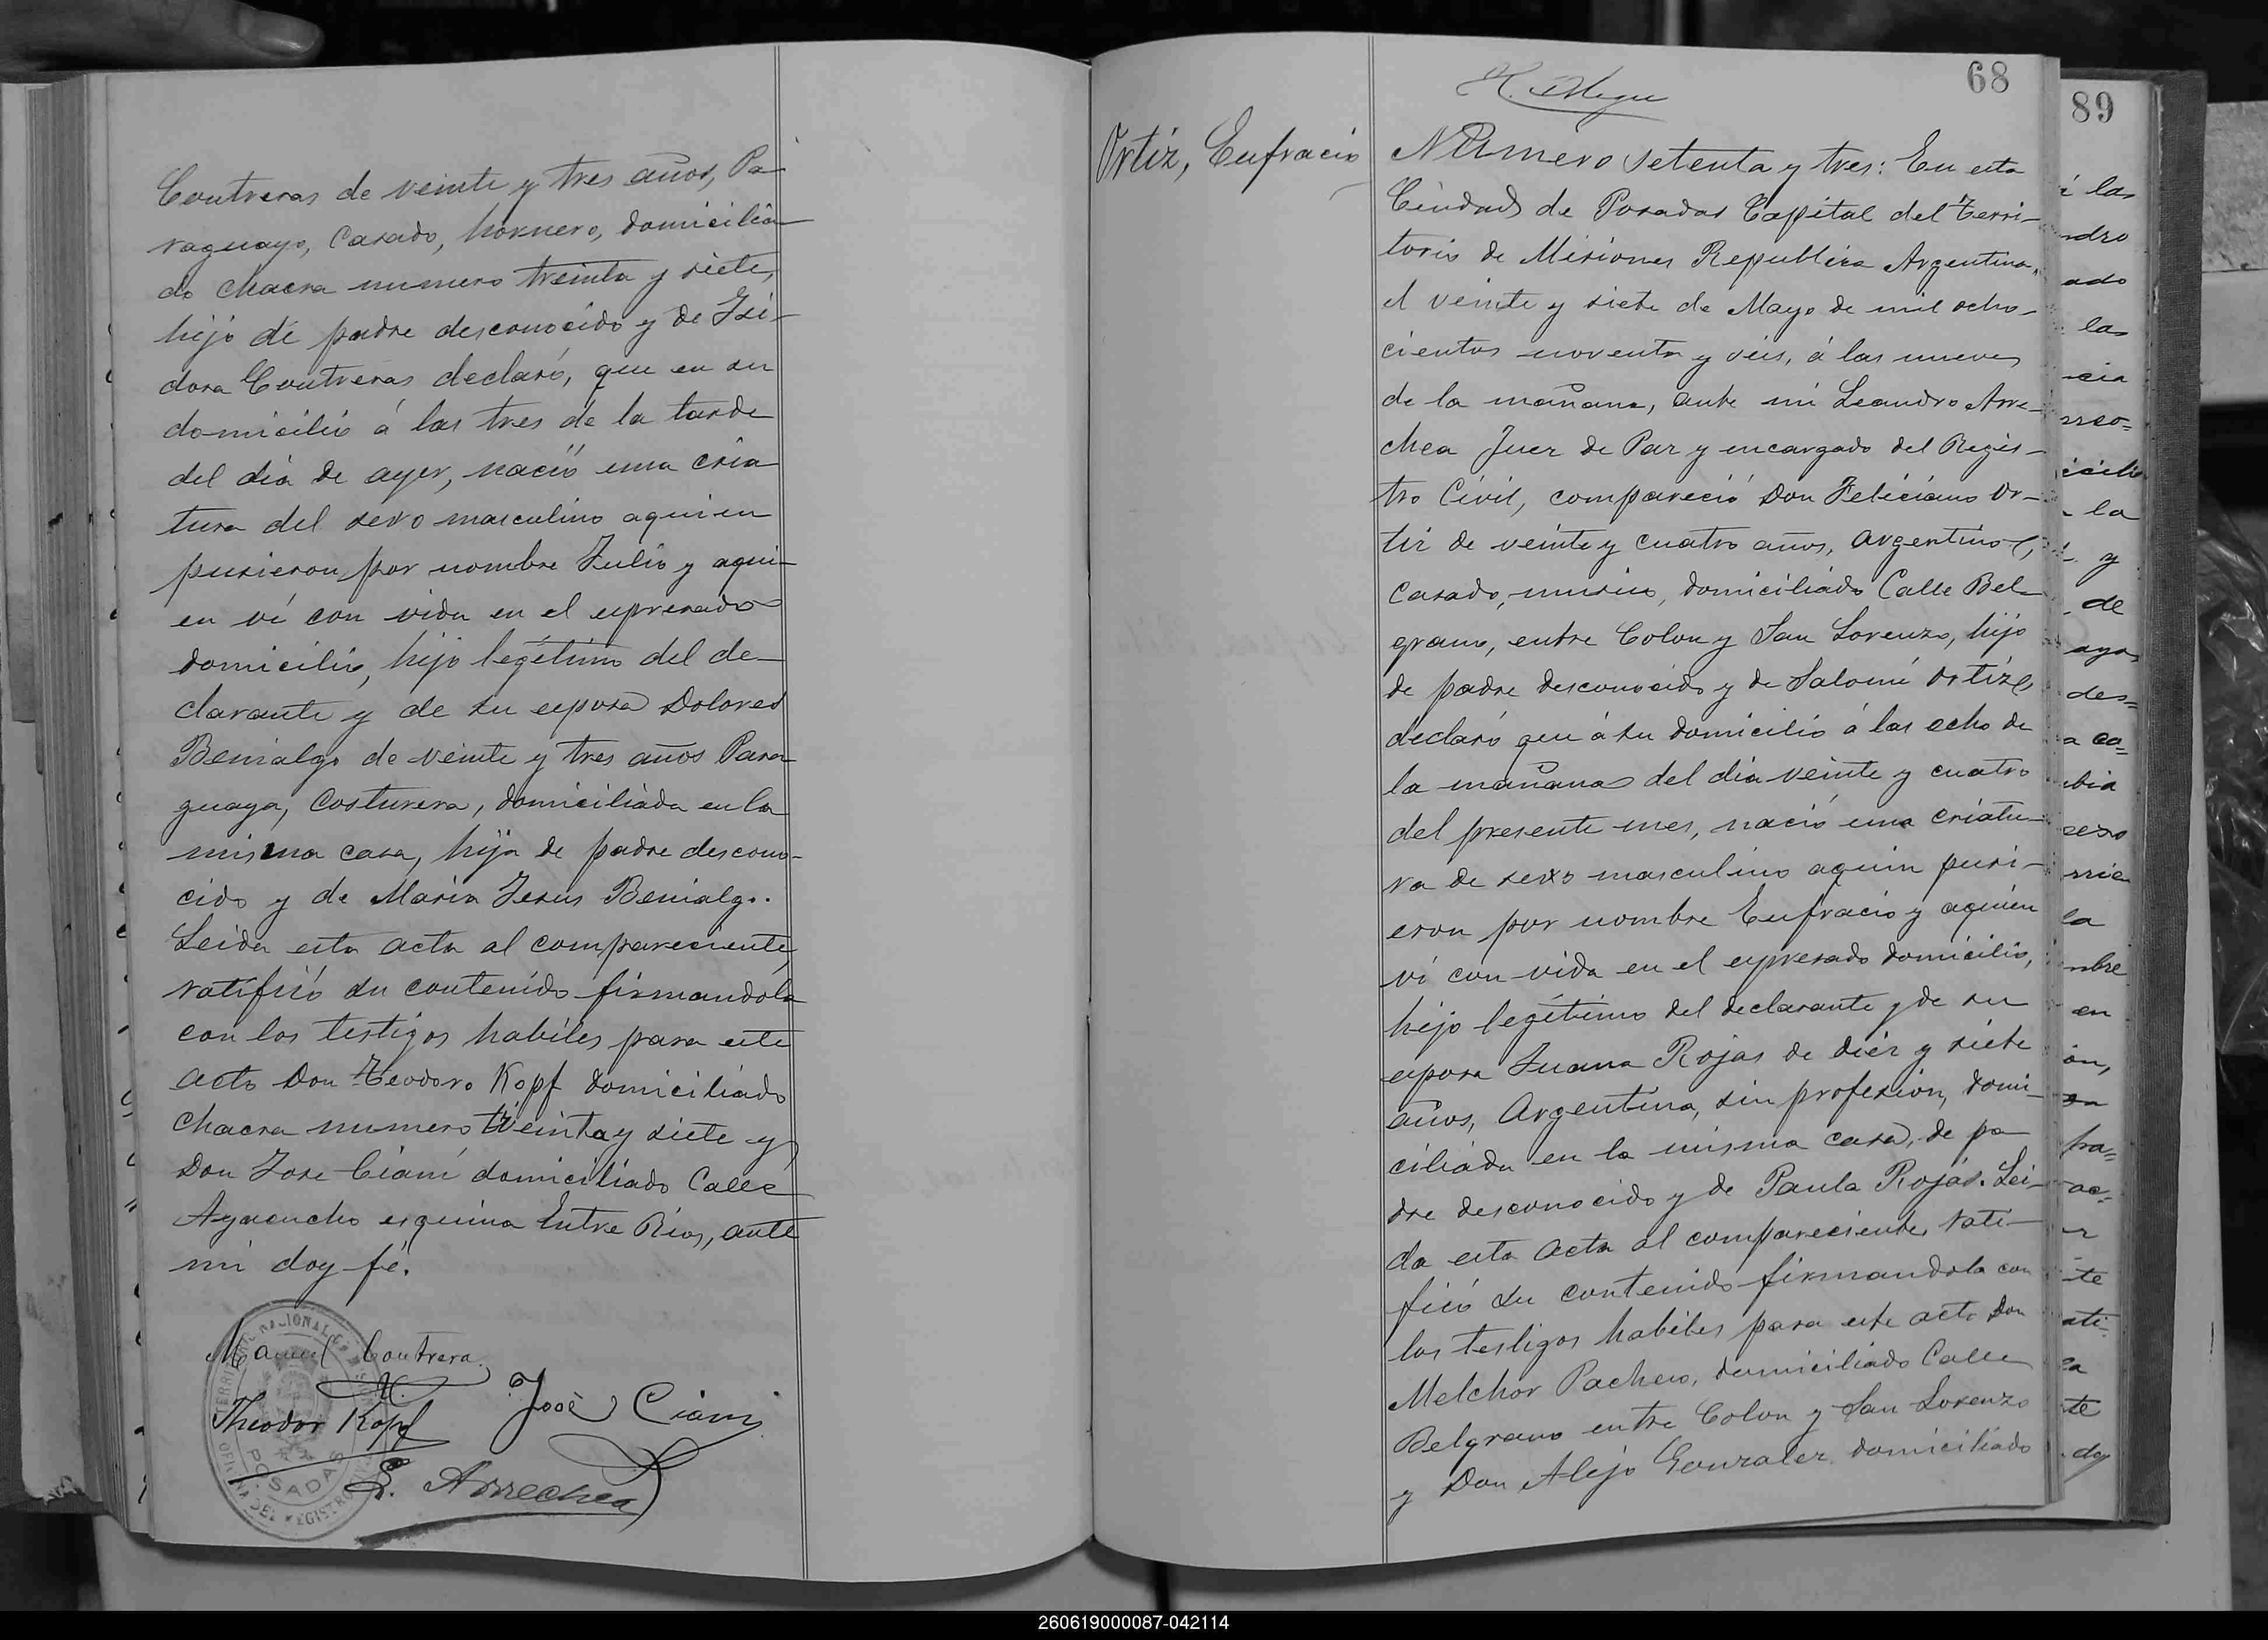 Contreras de veinte y tres años, Pa-
raguayo, Casado, hornero, domicilia-
do chacra numero treinta y siete,
hijo de padre desconocido y de Isi-
dora Contreras declaró, que en su
domicilio á las tres de la tarde
del dia de ayer, nació una cria
tura del sexo masculino aquien
pusieron por nombre Julio y aqui-
en ví con vida en el expresado
domicilio, hijo legítimo del de-
clarante y de su esposa Dolores
Benialgo de veinte y tres años Para
guaya, Costurera, domiciliada en la
misma casa, hija de padre descono-
cido y de Maria Jesus Benialgo.
Leida esta acta al compareciente,
ratificó su contenido firmandola
con los testigos habiles para este
acto Don Teodoro Kopf domiciliado
Chacra numero treinta y siete y
Don Jose Ciani domiciliado Calle
Ayacucho esquina Entre Rios, ante
mi doy fé.
Manuel Contrera
Theodor Kopf
José Ciani
L. Arrechea
POSADAS
68
89
Ortiz, Eufracio
Número setenta y tres: En esta
Ciudad de Posadas Capital del Terri-
torio de Misiones Republica Argentina,
el veinte y siete de Mayo de mil ocho-
cientos noventa y seis, á las nueve
de la mañana, ante mi Leandro Arre-
chea Juez de Paz y encargado del Regis-
tro Civil, compareció Don Feliciano Or-
tiz de veinte y cuatro años, argentino,
Casado, musico, domiciliado Calle Bel-
grano, entre Colon y San Lorenzo, hijo
de padre desconocido y de Salomé Ortiz
declaró que á su domicilio á las ocho de
la mañana del dia veinte y cuatro
del presente mes, nació una criatu-
ra de sexo masculino aquin pusi-
eron por nombre Eufracio y aquien
ví con vida en el expresado domicilio,
hijo legítimo del declarante y de su
esposa Juana Rojas de diez y siete
años, Argentina, sin profesion, domi-
ciliada en la misma casa, de pa
dre desconocido y de Paula Rojas. Lei-
da esta acta al compareciente, rati-
ficó su contenido firmandola con
los testigos habiles para este acto Don
Melchor Pacheco, domiciliado Calle
Belgrano entre Colon y San Lorenzo
y Don Alejo Gonzalez domiciliado
260619000087-042114